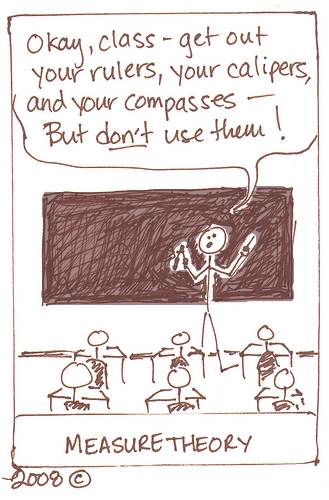 Okay, class - get out
your rulers, your calipers,
and your compasses —
But don't use them!
MEASURE THEORY
2008 ©